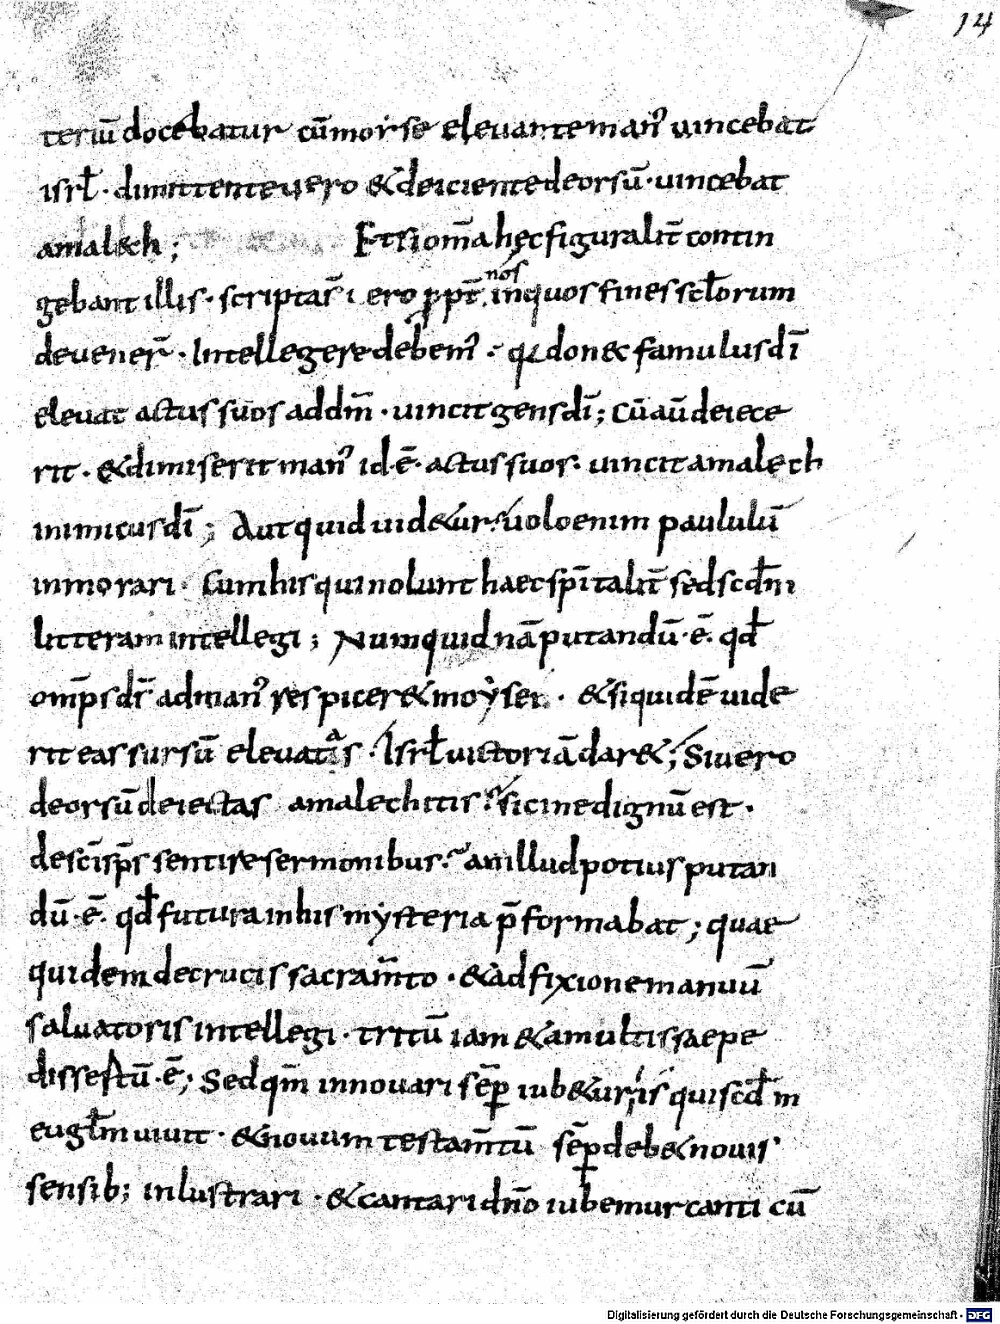 14
teriū docebatur cū morse elevante man᾽ uincebat
isrł · dimittente uero &deiciente deorsū · uincebat
amal&h ; Et si om̄a hęc figuralit̄ contin
gebant illis · script̄ as̄ ero ppt̄ nos inquos fines scłorum
deuener̄ · Intellegere debem᾽ · qđ donec famulus dī
eleuat actus suos ad dm̄ · uincit gens dī ; Cū aū deiece
rit · & dimiserit man᾽ id·ē· actus suos · uincit amalech
inimicus dī ; Aut quid uid&ur uolo enim paululū
inmorari · Cum his qui nolunt haec sp̄italit̄ sed scđm
litteram intellegi ; Numquid nā putandū·ē· qđ
om̄ps ds̄ ad man᾽ respicer& moẏsei · & siquidē uide
rit eas sursū eleuatas · Isrł uictoriā dar& ; Si uero
deorsū deiectas amalechitis · sicine dignū est ·
de scīs sp̄s sentire sermonibus · an illud potius putan
dū·ē· qđ futura in his mẏsteria p̄formabat ; quae
quidem de crucis sacram̄to · & adfixione manuū
saluatoris intellegi · tritū iam & a multis saepe
dissertū·ē ; Sed qm̄ innouari sēp iub&ur is qui scđm
eugłm uiuit · & nouum testam̄tū sēp deb& nouis
sensib; inlustrari · & cantari dn̄o iubemur canticū
Digitalisierung gefördert durch die Deutsche Forschungsgemeinschaft - DFG